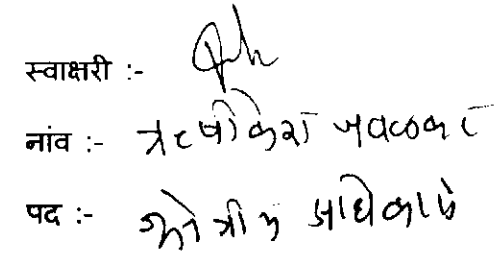 स्वाक्षरी :-
नांव :- ऋषीकेश जवळकर
पद :- क्षेत्रीय अधिकारी